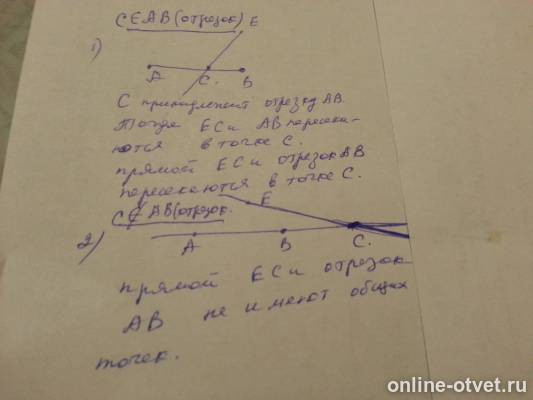 C ∈ AB (отрезок) E
1)
A C. B
C принадлежит отрезку AB.
Тогда EC и AB пересека-
ются в точке C.
прямой EC и отрезок AB
пересекаются в точке C.
E
C ∉ AB (отрезок.
2)
A B C.
прямой EC и отрезок
AB не имеют общих
точек.
online-otvet.ru